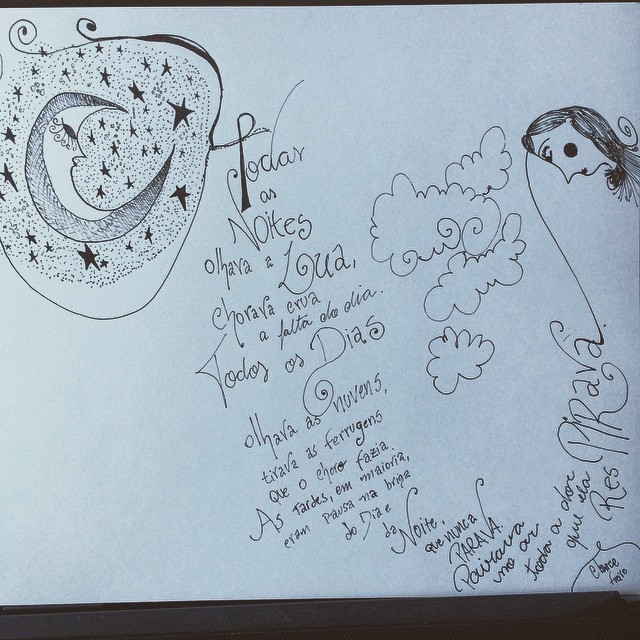 Todas
as
Noites
olhava a Lua,
chorava crua
a falta do dia.
Todos os Dias
olhava as nuvens,
tirava as ferrugens
que o choro fazia.
As Tardes, em maioria,
eram pausa na briga
do Dia e
da Noite,
que nunca
PARAVA.
Pairava
no ar
toda a dor
que ela
ResPiRava.